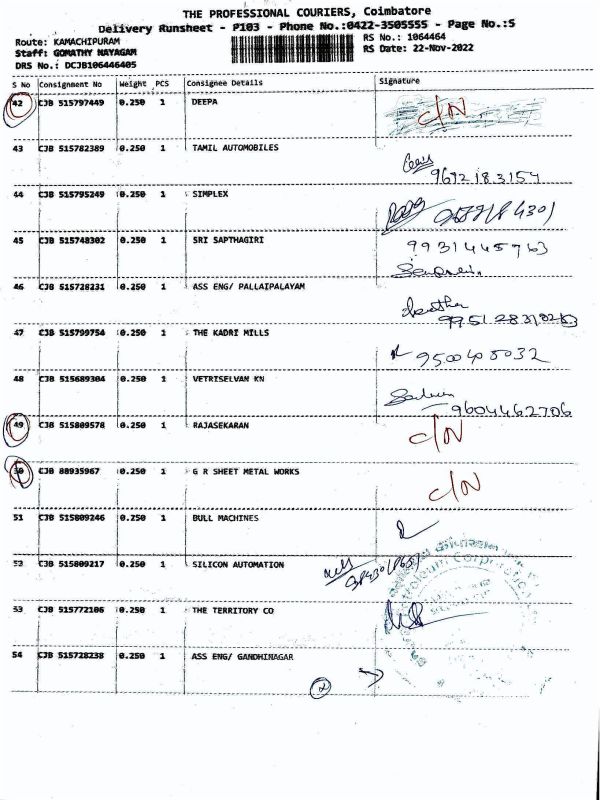 THE PROFESSIONAL COURIERS, Coimbatore
Delivery Runsheet - P103 - Phone No.:0422-3505555 - Page No.:5
Route: KAMACHIPURAM
RS No.: 1064464
Staff: GOMATHY NAYAGAM
RS Date: 22-Nov-2022
DRS No.: DCJB106446405
S No Consignment No Weight PCS Consignee Details Signature
42 CJB 515797449 0.250 1 DEEPA C/N
43 CJB 515782389 0.250 1 TAMIL AUTOMOBILES
9692183154
44 CJB 515795249 0.250 1 SIMPLEX
45 CJB 515748302 0.250 1 SRI SAPTHAGIRI 9931445763
46 CJB 515728231 0.250 1 ASS ENG/ PALLAIPALAYAM
47 CJB 515799754 0.250 1 THE KADRI MILLS
9500408032
48 CJB 515689304 0.250 1 VETRISELVAN KN
9604462706
49 CJB 515809578 0.250 1 RAJASEKARAN C/N
50 CJB 88935967 0.250 1 G R SHEET METAL WORKS
C/N
51 CJB 515809246 0.250 1 BULL MACHINES
52 CJB 515809217 0.250 1 SILICON AUTOMATION
53 CJB 515772106 0.250 1 THE TERRITORY CO
54 CJB 515728238 0.250 1 ASS ENG/ GANDHINAGAR